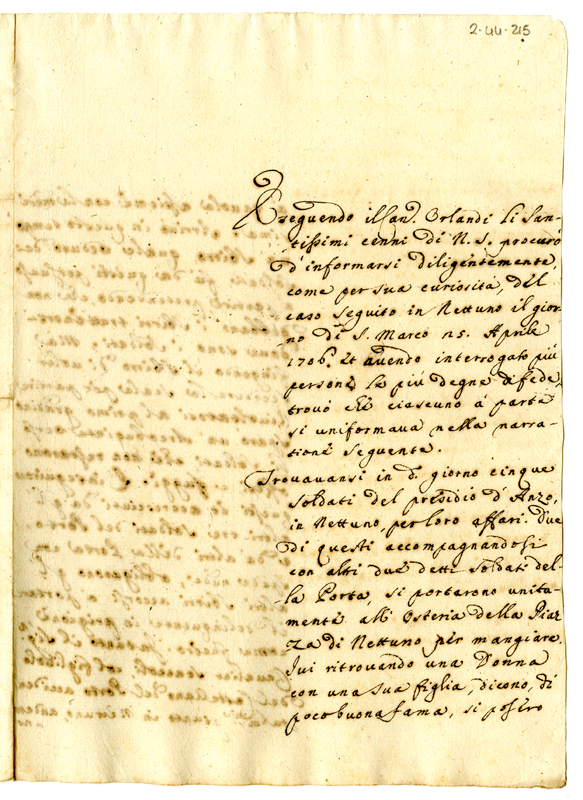 2-44-215
Eseguendo il San. Orlandi li San-
tissimi cenni di N. S. procurò
d'informarsi diligentemente,
come per sua curiosità, del
caso seguito in Nettuno il gior-
no di S. Marco 25. Aprile
1706. Et avendo interrogato più
persone le più degne di fede,
trovò che ciascuno à parte
si uniformava nella narra-
tione seguente.
Trovavansi in d. giorno cinque
soldati del presidio d'Anzo,
in Nettuno, per loro affari. Due
di questi accompagnandosi
con altri due detti soldati del-
la Porta, si portarono unita-
mente all'Osteria della Piaz-
za di Nettuno per mangiare.
Ivi ritrovando una Donna
con una sua figlia, dicono, di
poco buona fama, si posero